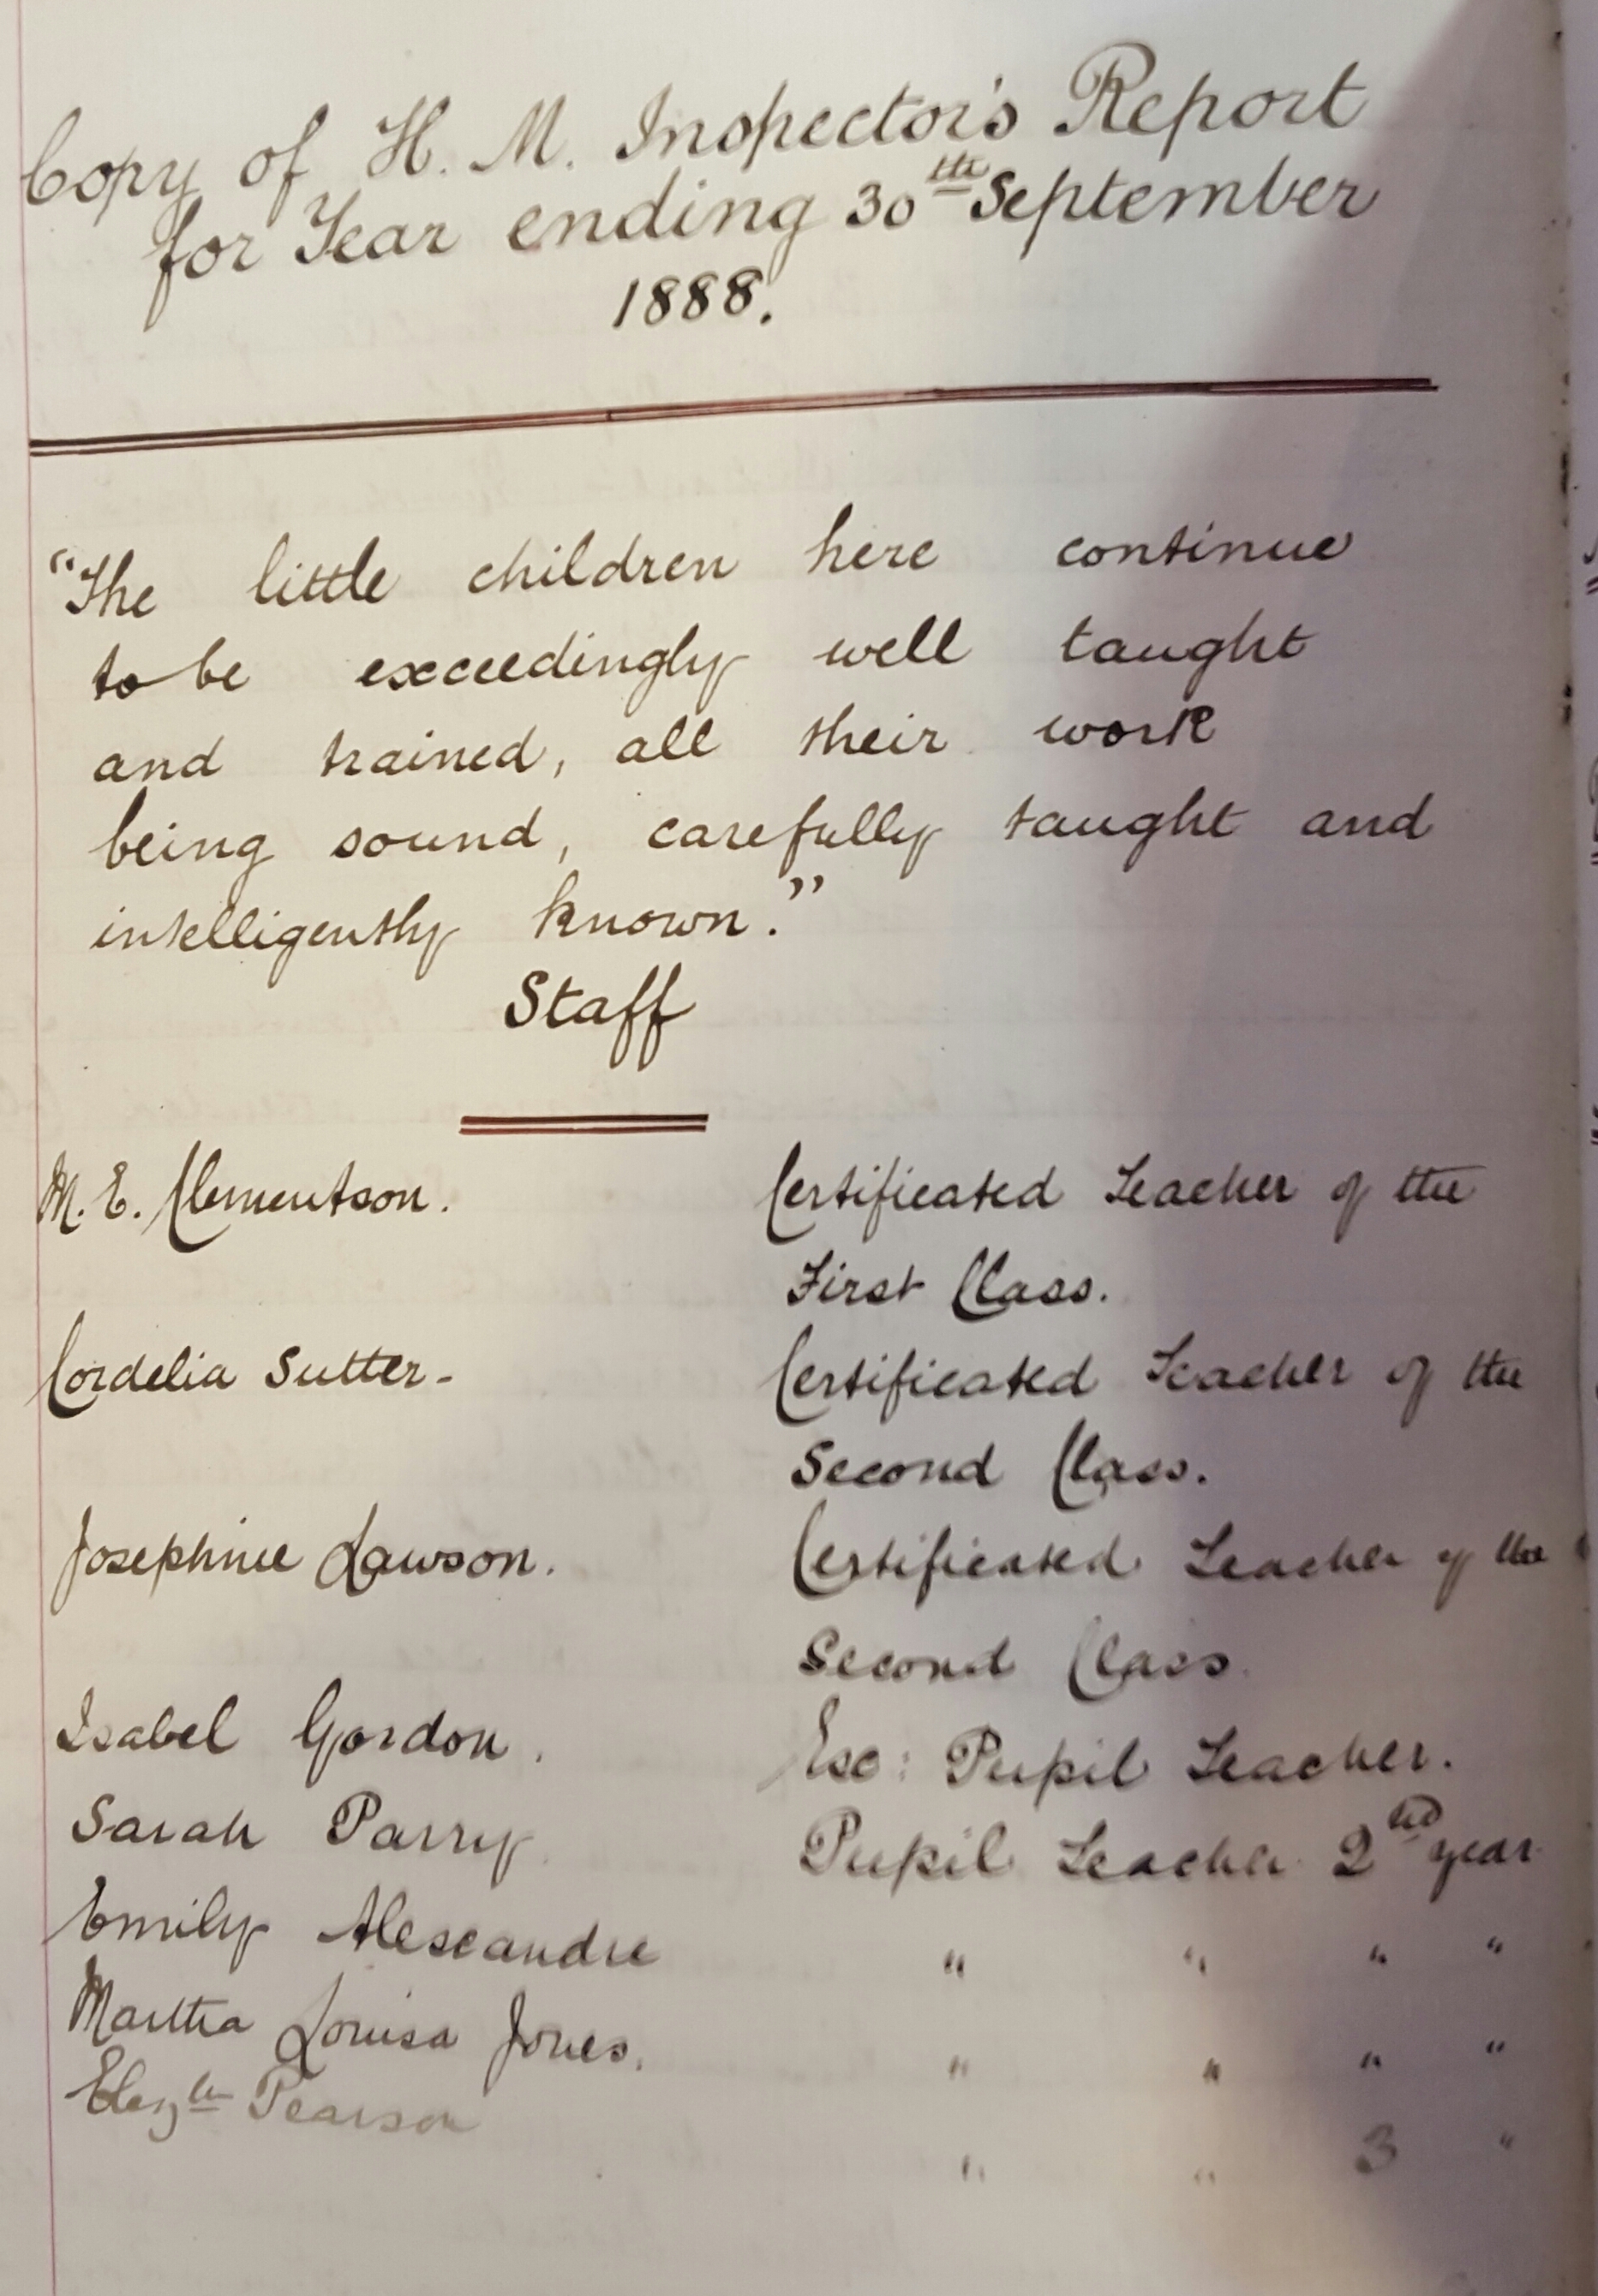 Copy of H. M. Inspector's Report
for Year ending 30th September
1888.
"The little children here continue
to be exceedingly well taught
and trained, all their work
being sound, carefully taught and
intelligently known."
Staff
M. E. Clementson. Certificated Teacher of the
First Class.
Cordelia Sutter - Certificated Teacher of the
Second Class.
Josephine Lawson. Certificated Teacher of the
Second Class
Isabel Gordon. Exc: Pupil Teacher.
Sarah Parry Pupil Teacher 2nd year
Emily Alexandre " " " "
Martha Louisa Jones. " " " "
Elizth Pearson " " 3 "